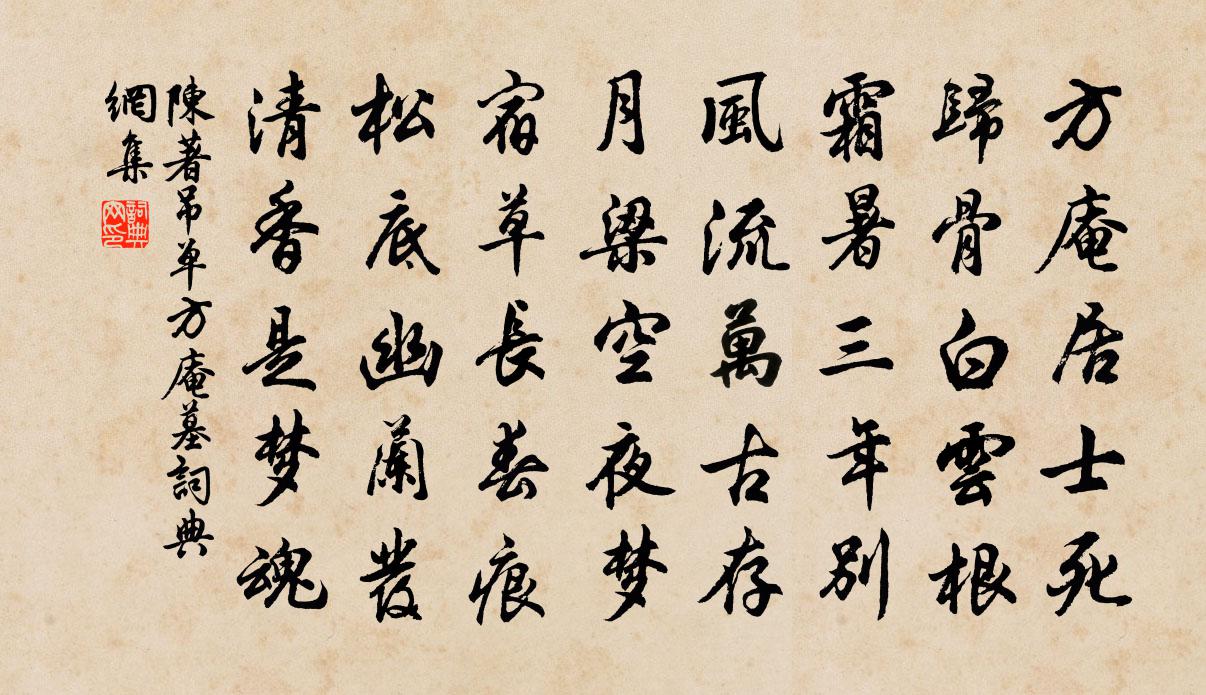 方庵居士死
歸骨白雲根
霜暑三年別
風流萬古存
月梁空夜梦
宿草長春痕
松底幽蘭發
清香是梦魂
陳著吊单方庵墓詞典
網集
詞典網印